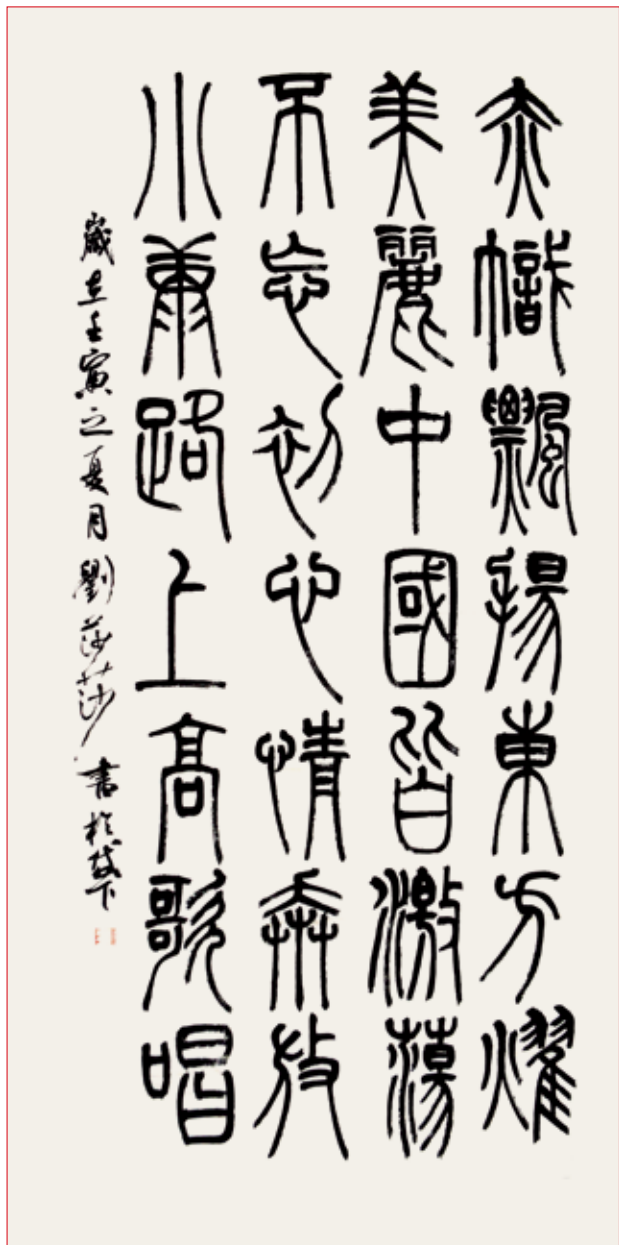 赤幟飄揚東方耀
美麗中國皆激蕩
不忘初心情奔放
小康路上高歌唱
歲在壬寅之夏月劉莎莎書於岱下